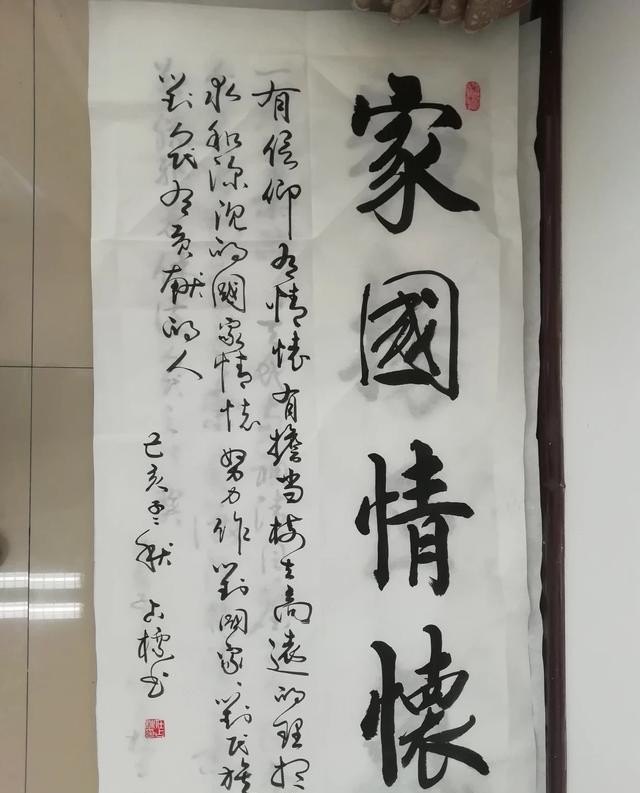 家國情懷
有信仰有情懷有擔当树立高遠的理想
求和深沉的國家情懷努力作對國家對民族
對人民有贡献的人
己亥秋书